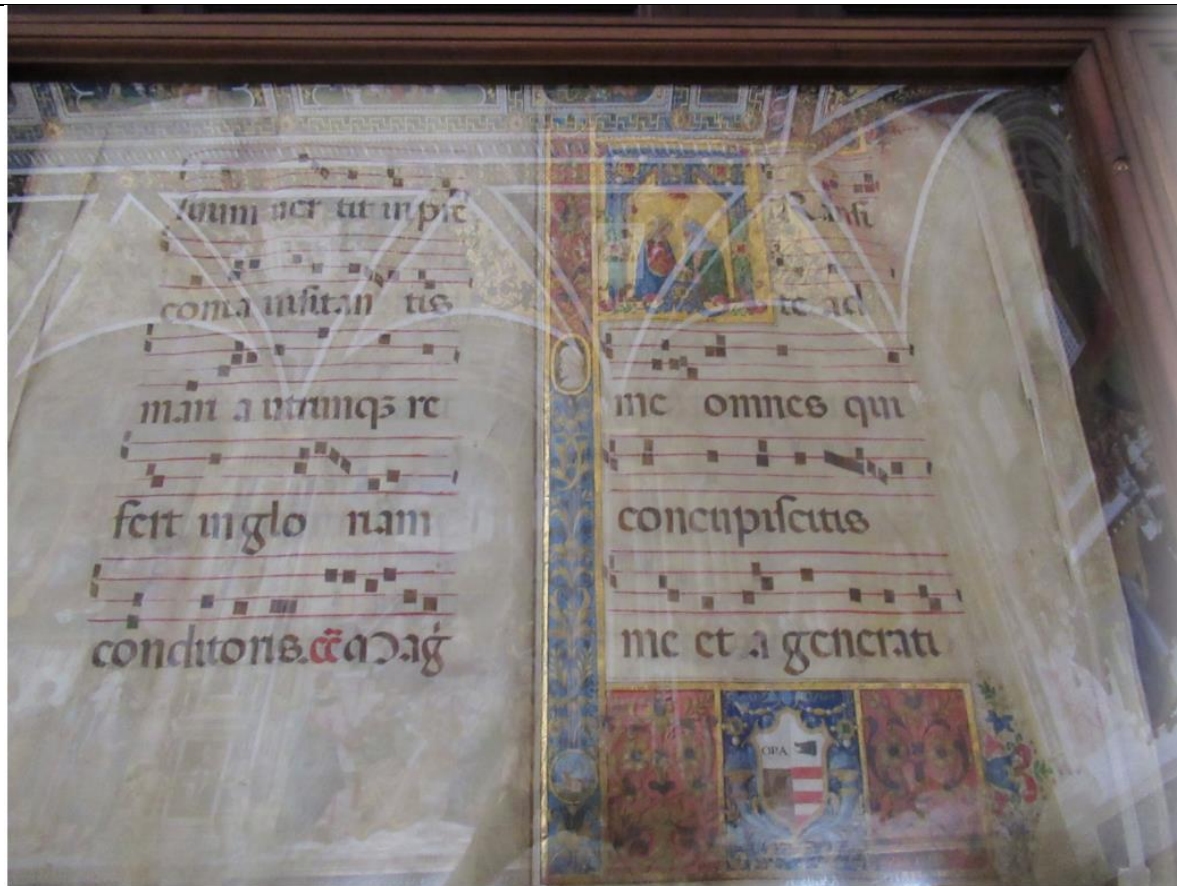 uer tit in pre
conia uisitan tis
mari a utrunqꝫ re
fert in glo riam
conditoris. a Mag
Ransi
te ad
me omnes qui
concupiscitis
me et a generati
OPA